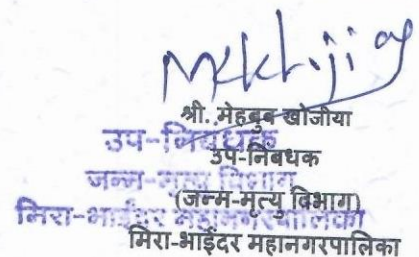 श्री. मेहबुब खोजीया
उप-निबंधक
उप-निंबधक
जन्म-मृत्यु विभाग
(जन्म-मृत्यु विभाग)
मिरा-भाईंदर महानगरपालिका
मिरा-भाईंदर महानगरपालिका